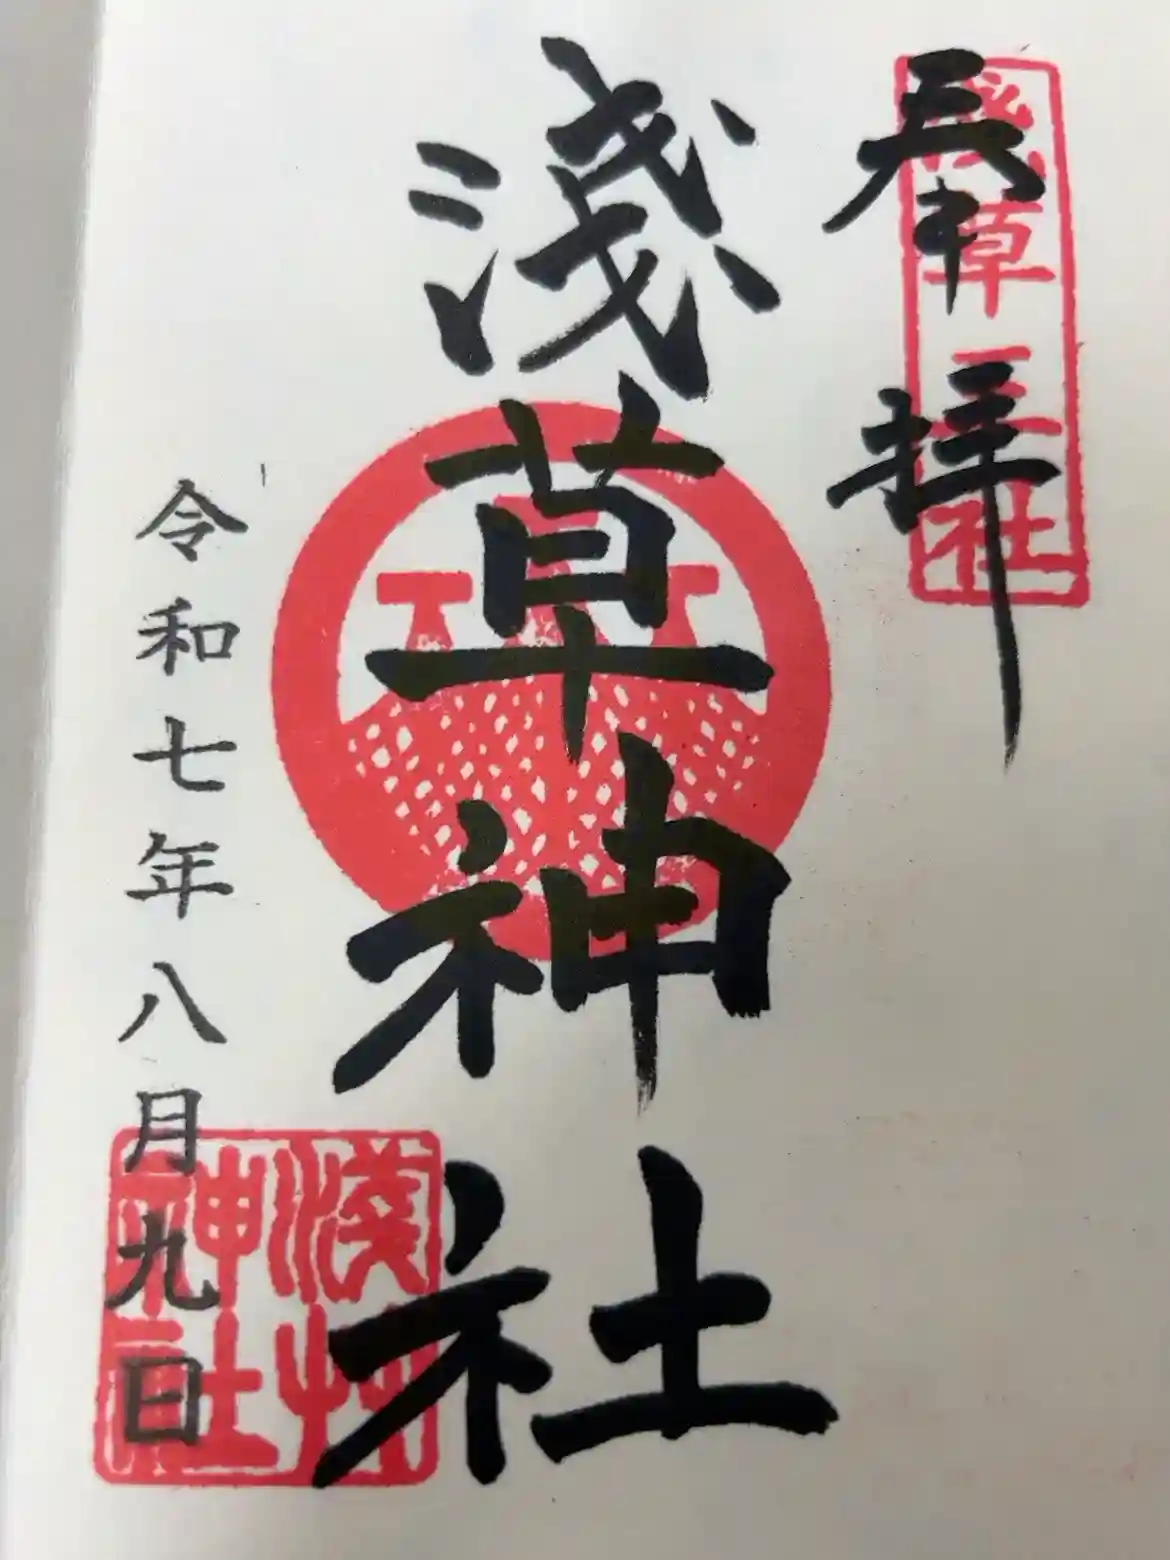 奉拝
浅草三社
浅草神社
令和七年八月九日
浅草神社